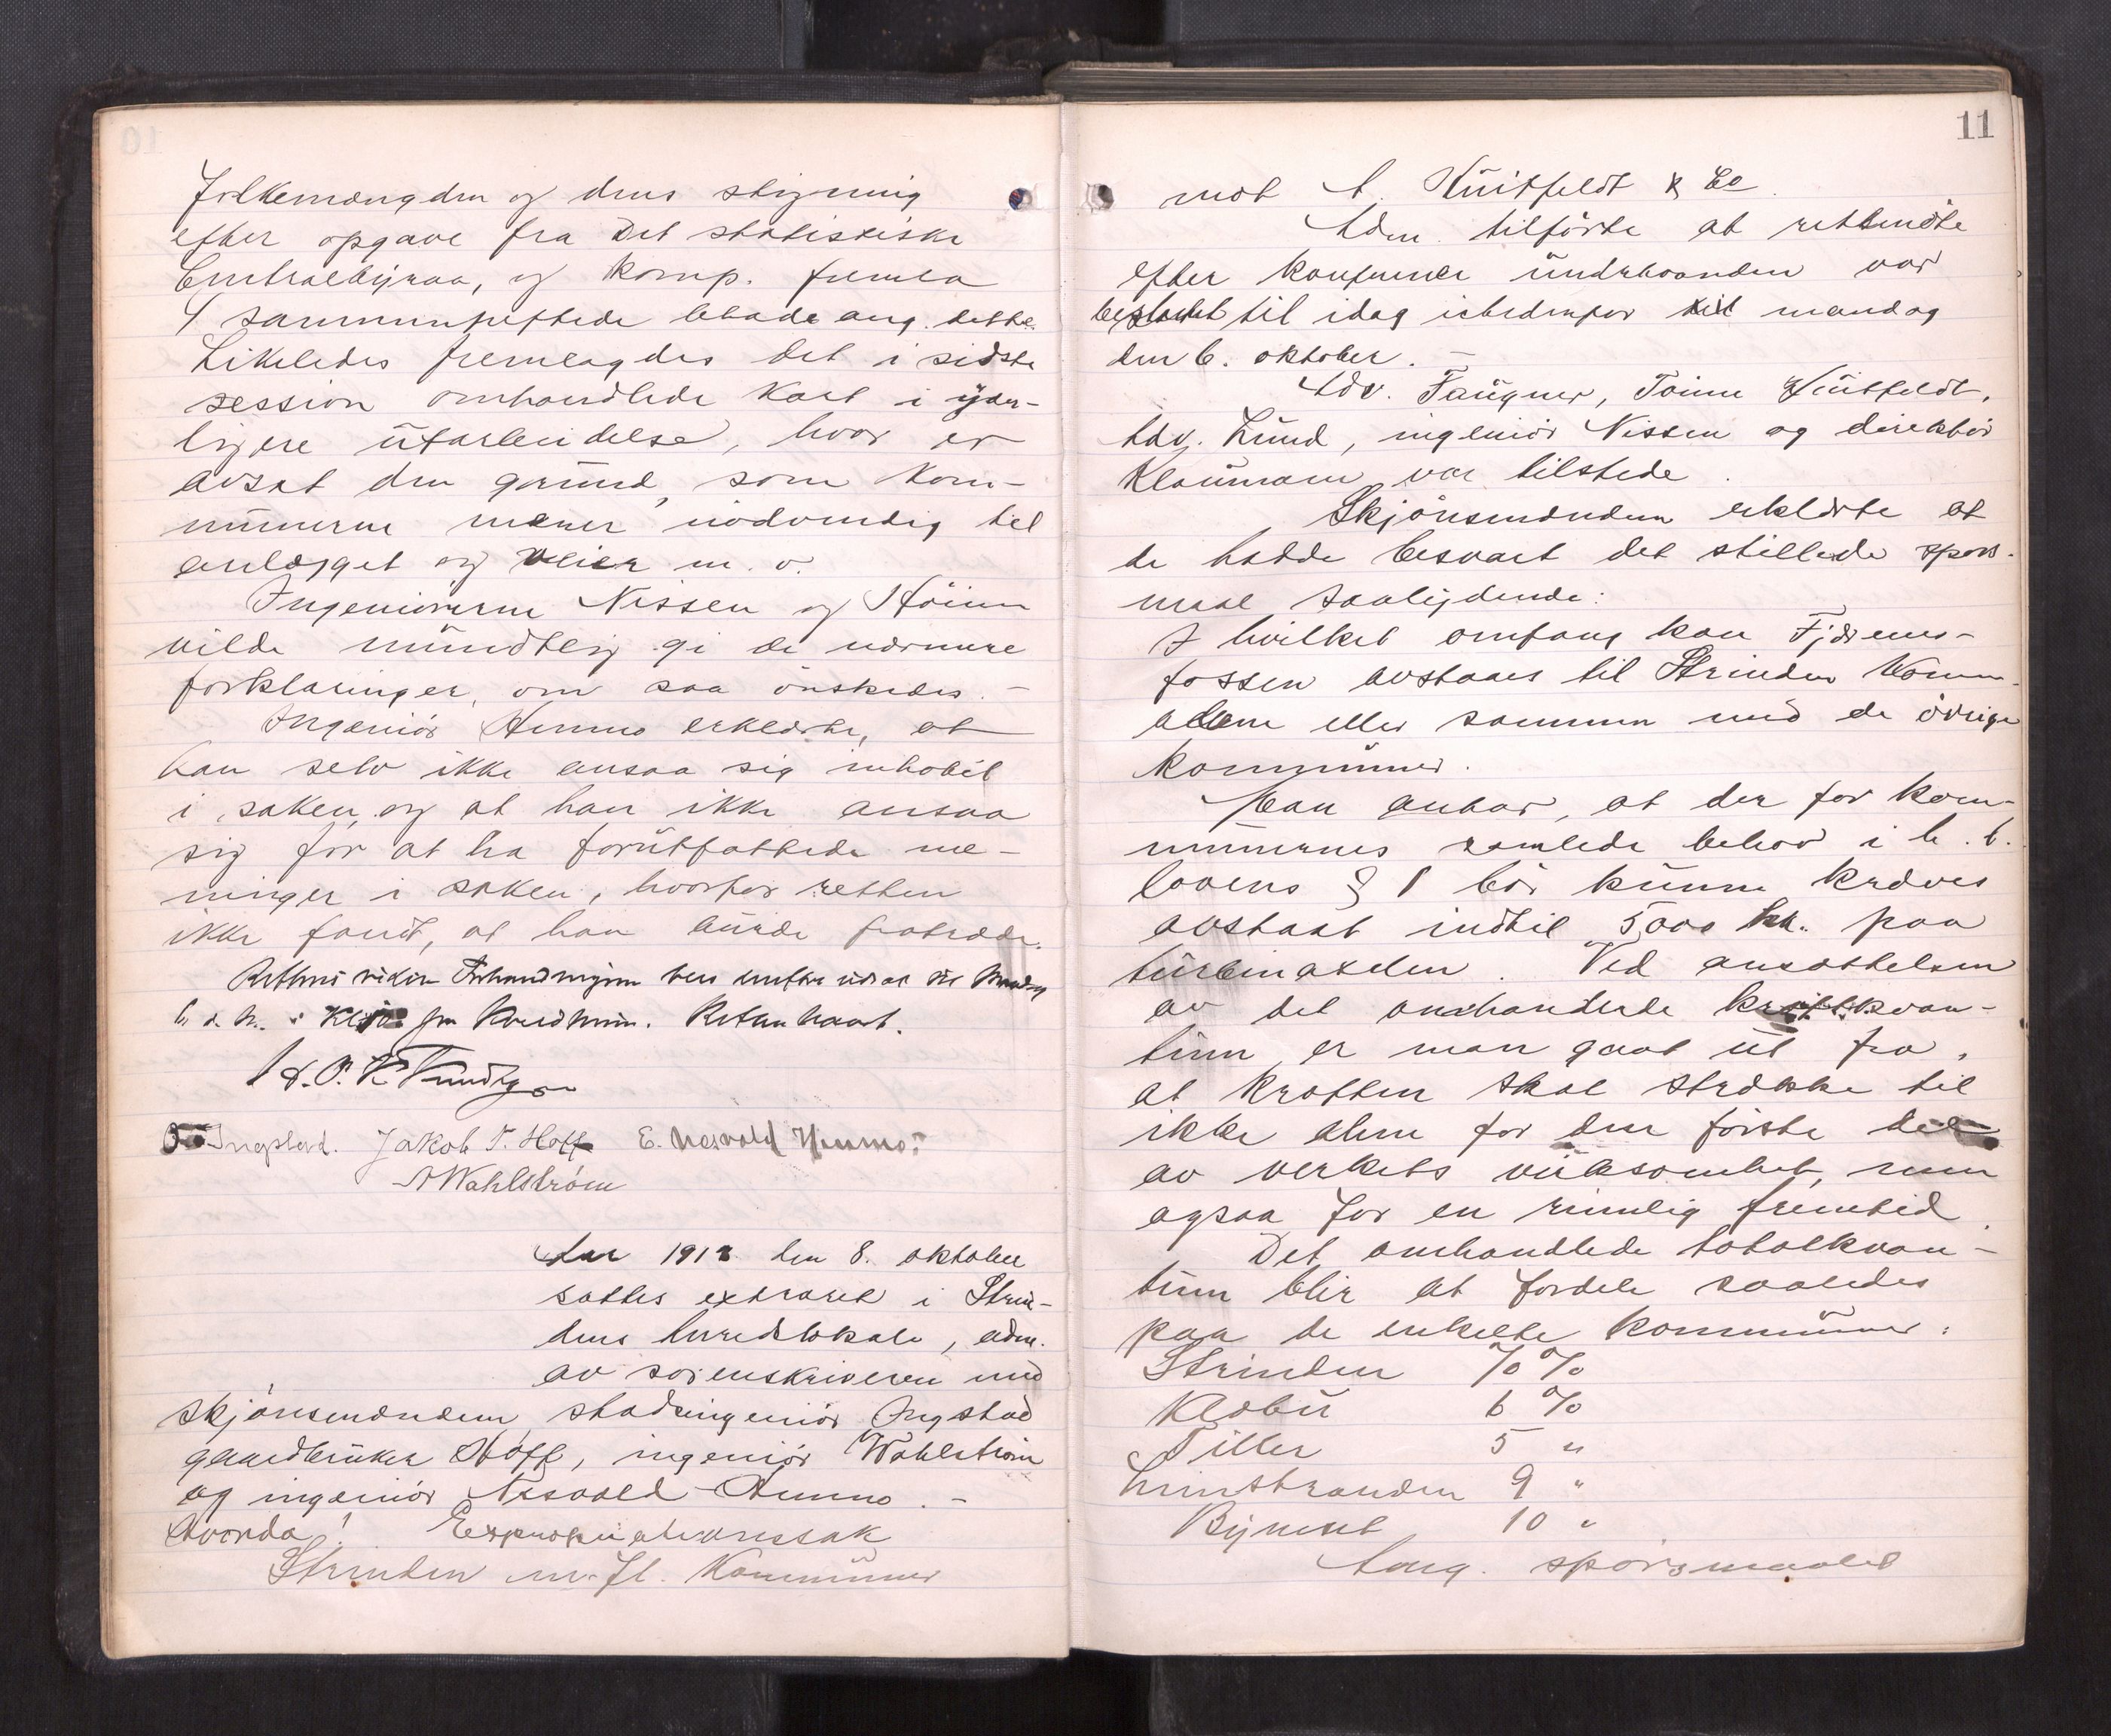 folkemængden og dens stigning
efter opgave fra Det statistiske
Centralbyraa, og komp. fremla
4 sammenheftede blade ang. dette.
Likeledes fremlagdes det i sidste
session omhandlede kart i yder-
ligere utarbeidelse, hvor er
avsat den grund, som kom-
munerne mener nødvendig til
anlægget og veier m. v.
Ingeniørerne Nissen og Støren
vilde mundtlig gi de nærmere
forklaringer, om saa ønskedes. –
Ingeniør Hmmo erklærte, at
han selv ikke ansaa sig inhabil
i saken og at han ikke ansaa
sig for at ha forutfattede me-
ninger i saken, hvorfor retten
ikke fandt, at han burde fratræde.
Rettens videre Forhandlinger
6. d. M. i Retten hævet.
Ingstad. Jakob T. Hoff E. Nesvold Hmmo.
A Wahlstrøm
Aar 1913 den 8. oktober
sattes extraret i Strin-
dens herredslokale, adm.
av sorenskriveren med
skjønsmændene stadsingeniør Ingstad
gaardbruker Hoff, ingeniør Wahlstrøm
og ingeniør Nesvold Hmmo. –
Hvorda: Expropriationssak
Strinden m. fl. kommuner
11
mot A. Huitfeldt & Co.
Adm. tilførte at rettmøte
efter konferance underhaanden var
besluttet til idag istedenfor til mandag
den 6. oktober. –
Adv. Faugner, Huitfeldt,
adv. Lund, ingeniør Nissen og direktør
Klaumann var tilstede.
Skjønsmændene erklærte at
de hadde besvart det stillede spørs-
maal saalydende:
I hvilket omfang kan Fjærems-
fossen avstaaes til Strinden komm.
alene eller sammen med de øvrige
kommuner.
Man antar, at der for kom-
munernes samlede behov i h. t.
lovens § 1 bør kunne kræves
avstaat indtil 5000 hk. paa
turbinakslen. Ved ansættelsen
av det omhandlede kraftkvan-
tum er man gaat ut fra,
at kraften skal strække til
ikke alene for den første del
av verkets virksomhet, men
ogsaa for en rimelig fremtid.
Det omhandlede totalkvan-
tum blir at fordele saaledes
paa de enkelte kommuner:
Strinden 70 %
Klæbu 6 %
Tiller 5 "
Leinstranden 9 "
Bynesset 10 "
Ang. spørsmaalet